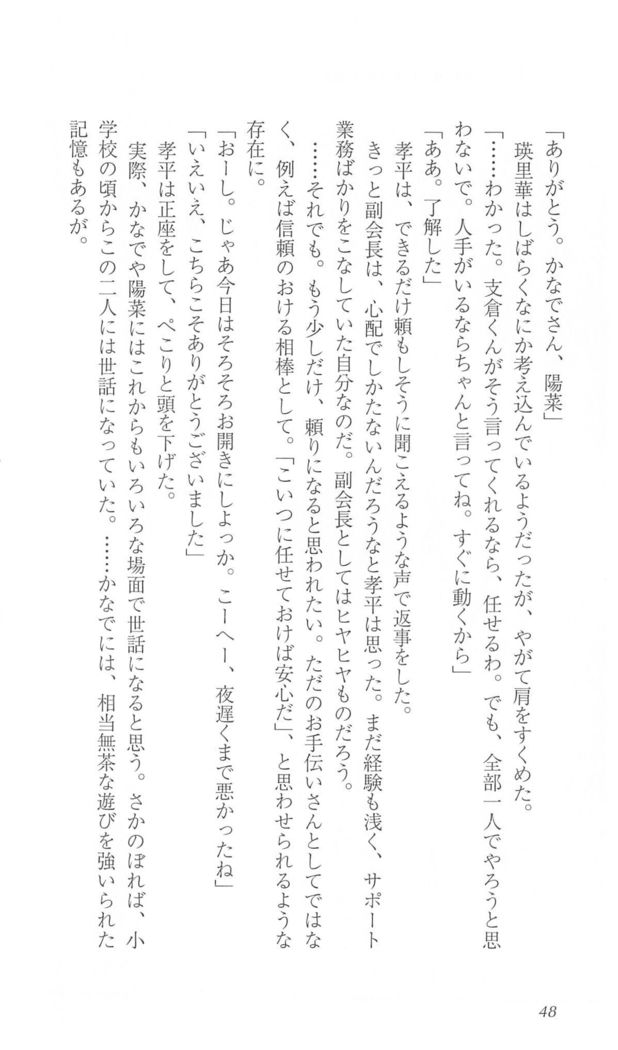 「ありがとう。かなでさん、陽菜」
瑛里華はしばらくなにか考え込んでいるようだったが、やがて肩をすくめた。
「……わかった。支倉くんがそう言ってくれるなら、任せるわ。でも、全部一人でやろうと思
わないで。人手がいるならちゃんと言ってね。すぐに動くから」
「ああ。了解した」
孝平は、できるだけ頼もしそうに聞こえるような声で返事をした。
きっと副会長は、心配でしかたないんだろうなと孝平は思った。まだ経験も浅く、サポート
業務ばかりをこなしていた自分なのだ。副会長としてはヒヤヒヤものだろう。
……それでも。もう少しだけ、頼りになると思われたい。ただのお手伝いさんとしてではな
く、例えば信頼のおける相棒として。「こいつに任せておけば安心だ」、と思わせられるような
存在に。
「おーし。じゃあ今日はそろそろお開きにしよっか。こーへー、夜遅くまで悪かったね」
「いえいえ、こちらこそありがとうございました」
孝平は正座をして、ぺこりと頭を下げた。
実際、かなでや陽菜にはこれからもいろいろな場面で世話になると思う。さかのぼれば、小
学校の頃からこの二人には世話になっていた。……かなでには、相当無茶な遊びを強いられた
記憶もあるが。
48